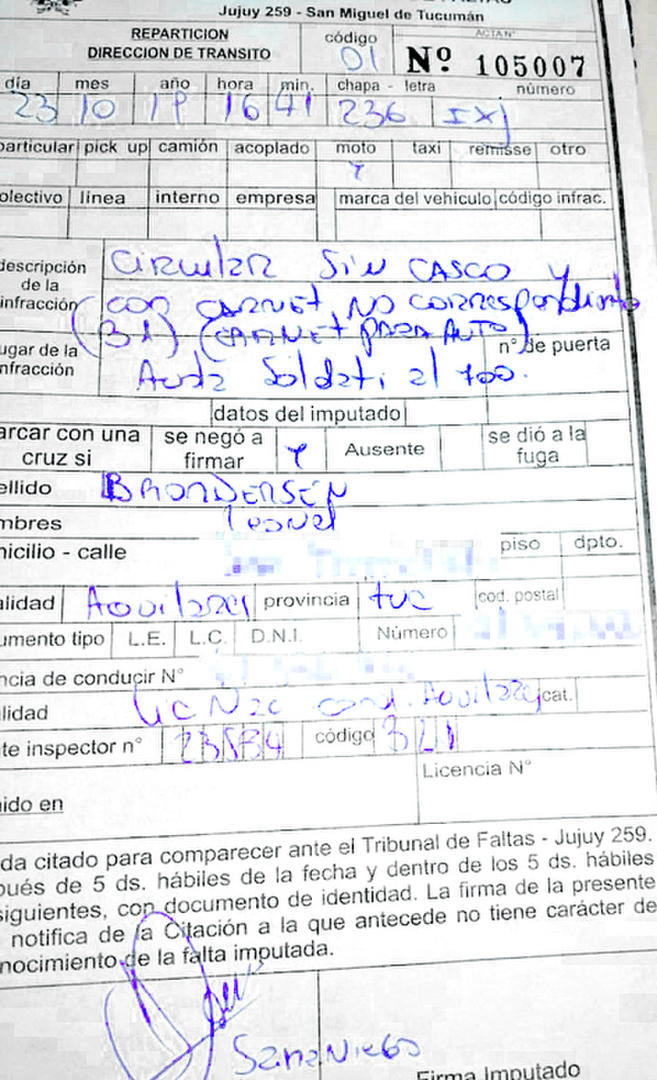 Jujuy 259 - San Miguel de Tucumán
REPARTICION
DIRECCION DE TRANSITO
código
01
Nº 105007
día mes año hora min. chapa - letra número
23 10 19 16 41 236 IXJ
particular pick up camión acoplado moto taxi remisse otro
colectivo línea interno empresa marca del vehiculo código infrac.
descripción de la infracción
CIRCULAR SIN CASCO Y
CON CARNET NO CORRESPONDIENTE
(B1) (CARNET PARA AUTO)
lugar de la infracción
nº de puerta
Avda Soldati al 700.
datos del imputado
marcar con una cruz si
se negó a firmar
Ausente
se dió a la fuga
ellido BRONDERSEN
mbres Leonel
micilio - calle piso dpto.
alidad Aguilares provincia tuc cod. postal
umento tipo L.E. L.C. D.N.I. Número
ncia de conducir N°
alidad Lic Nac cond. Aguilares cat.
te inspector n° 23534 código 321
Licencia N°
nido en
da citado para comparecer ante el Tribunal de Faltas - Jujuy 259.
pués de 5 ds. hábiles de la fecha y dentro de los 5 ds. hábiles
siguientes, con documento de identidad. La firma de la presente
notifica de la Citación a la que antecede no tiene carácter de
nocimiento de la falta imputada.
Firma Imputado